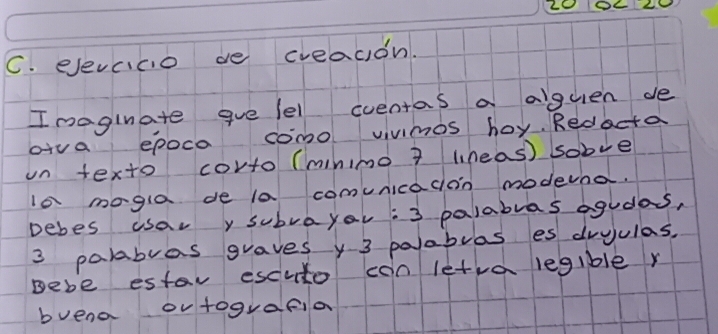 20 02 20
C. ejercicio de creación.
Imaginate que lel cuentas a alguien de
otra época cómo vivimos hoy. Redacta
un texto corto (minimo 7 lineas) sobre
la magia de la comunicación moderna.
Debes usar y subrayar: 3 palabras agudas,
3 palabras graves y 3 palabras es drujulas.
Debe estar escrito con letra legible y
buena ortografia